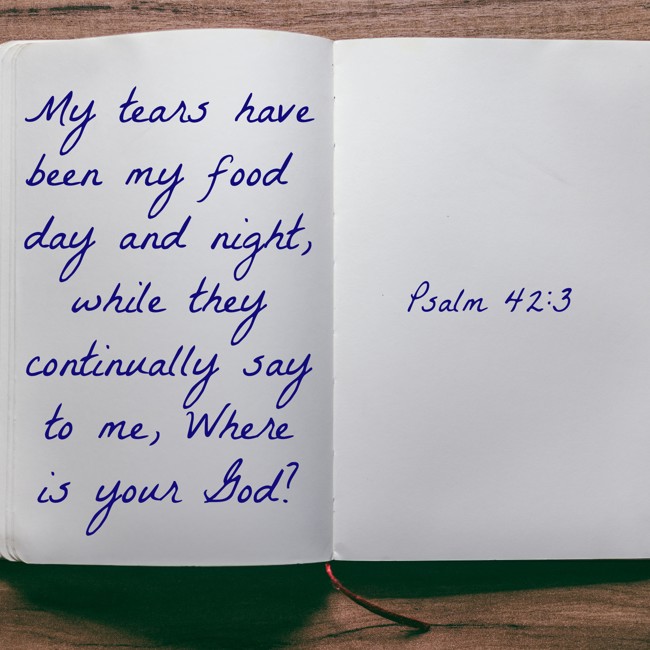 My tears have
been my food
day and night,
while they
continually say
to me, Where
is your God?
Psalm 42:3